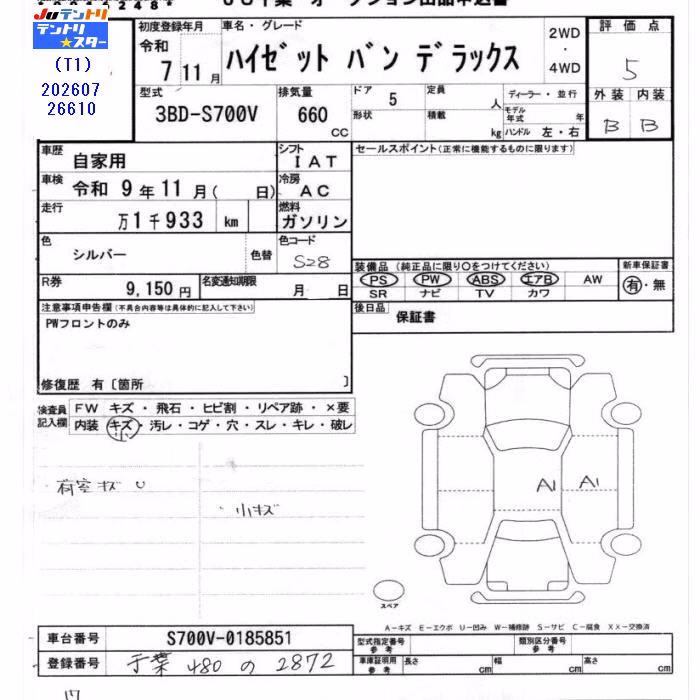 JUテントリ
テントリ★スター
(T1)
202607
26610
初度登録年月
令和
7年11月
車名・グレード
ハイゼット バン デラックス
2WD
・
4WD
評価点
5
型式
3BD-S700V
排気量
660 CC
ドア 5
形状
定員 人
積載 kg
ディーラー・並行
モデル年式 年
ハンドル 左・右
外装 内装
B B
車歴 自家用
シフト IAT
セールスポイント(正常に機能するものに限ります)
車検 令和 9年11月( 日)
冷房 AC
走行 万1千933 km
燃料 ガソリン
色 シルバー 色替
色コード S28
R券 9,150円
名変通知期限 月 日
装備品(純正品に限り○をつけてください)
PS PW ABS エアB AW
SR ナビ TV カワ
新車保証書
有・無
後日品 保証書
注意事項申告欄(不具合内容等は具体的に記入して下さい)
PWフロントのみ
修復歴 有〔箇所 〕
検査員記入欄
FW キズ・飛石・ヒビ割・リペア跡・×要
内装 キズ・汚レ・コゲ・穴・スレ・キレ・破レ
小
荷室キズ U
小キズ
A1 A1
スペア
A-キズ E-エクボ U-凹み W-補修跡 S-サビ C-腐食 XX-交換済
車台番号 S700V-0185851
型式指定番号 参考
類別区分番号 参考
登録番号 千葉 480 の 2872
車庫証明用 参考
長さ cm 幅 cm 高さ cm